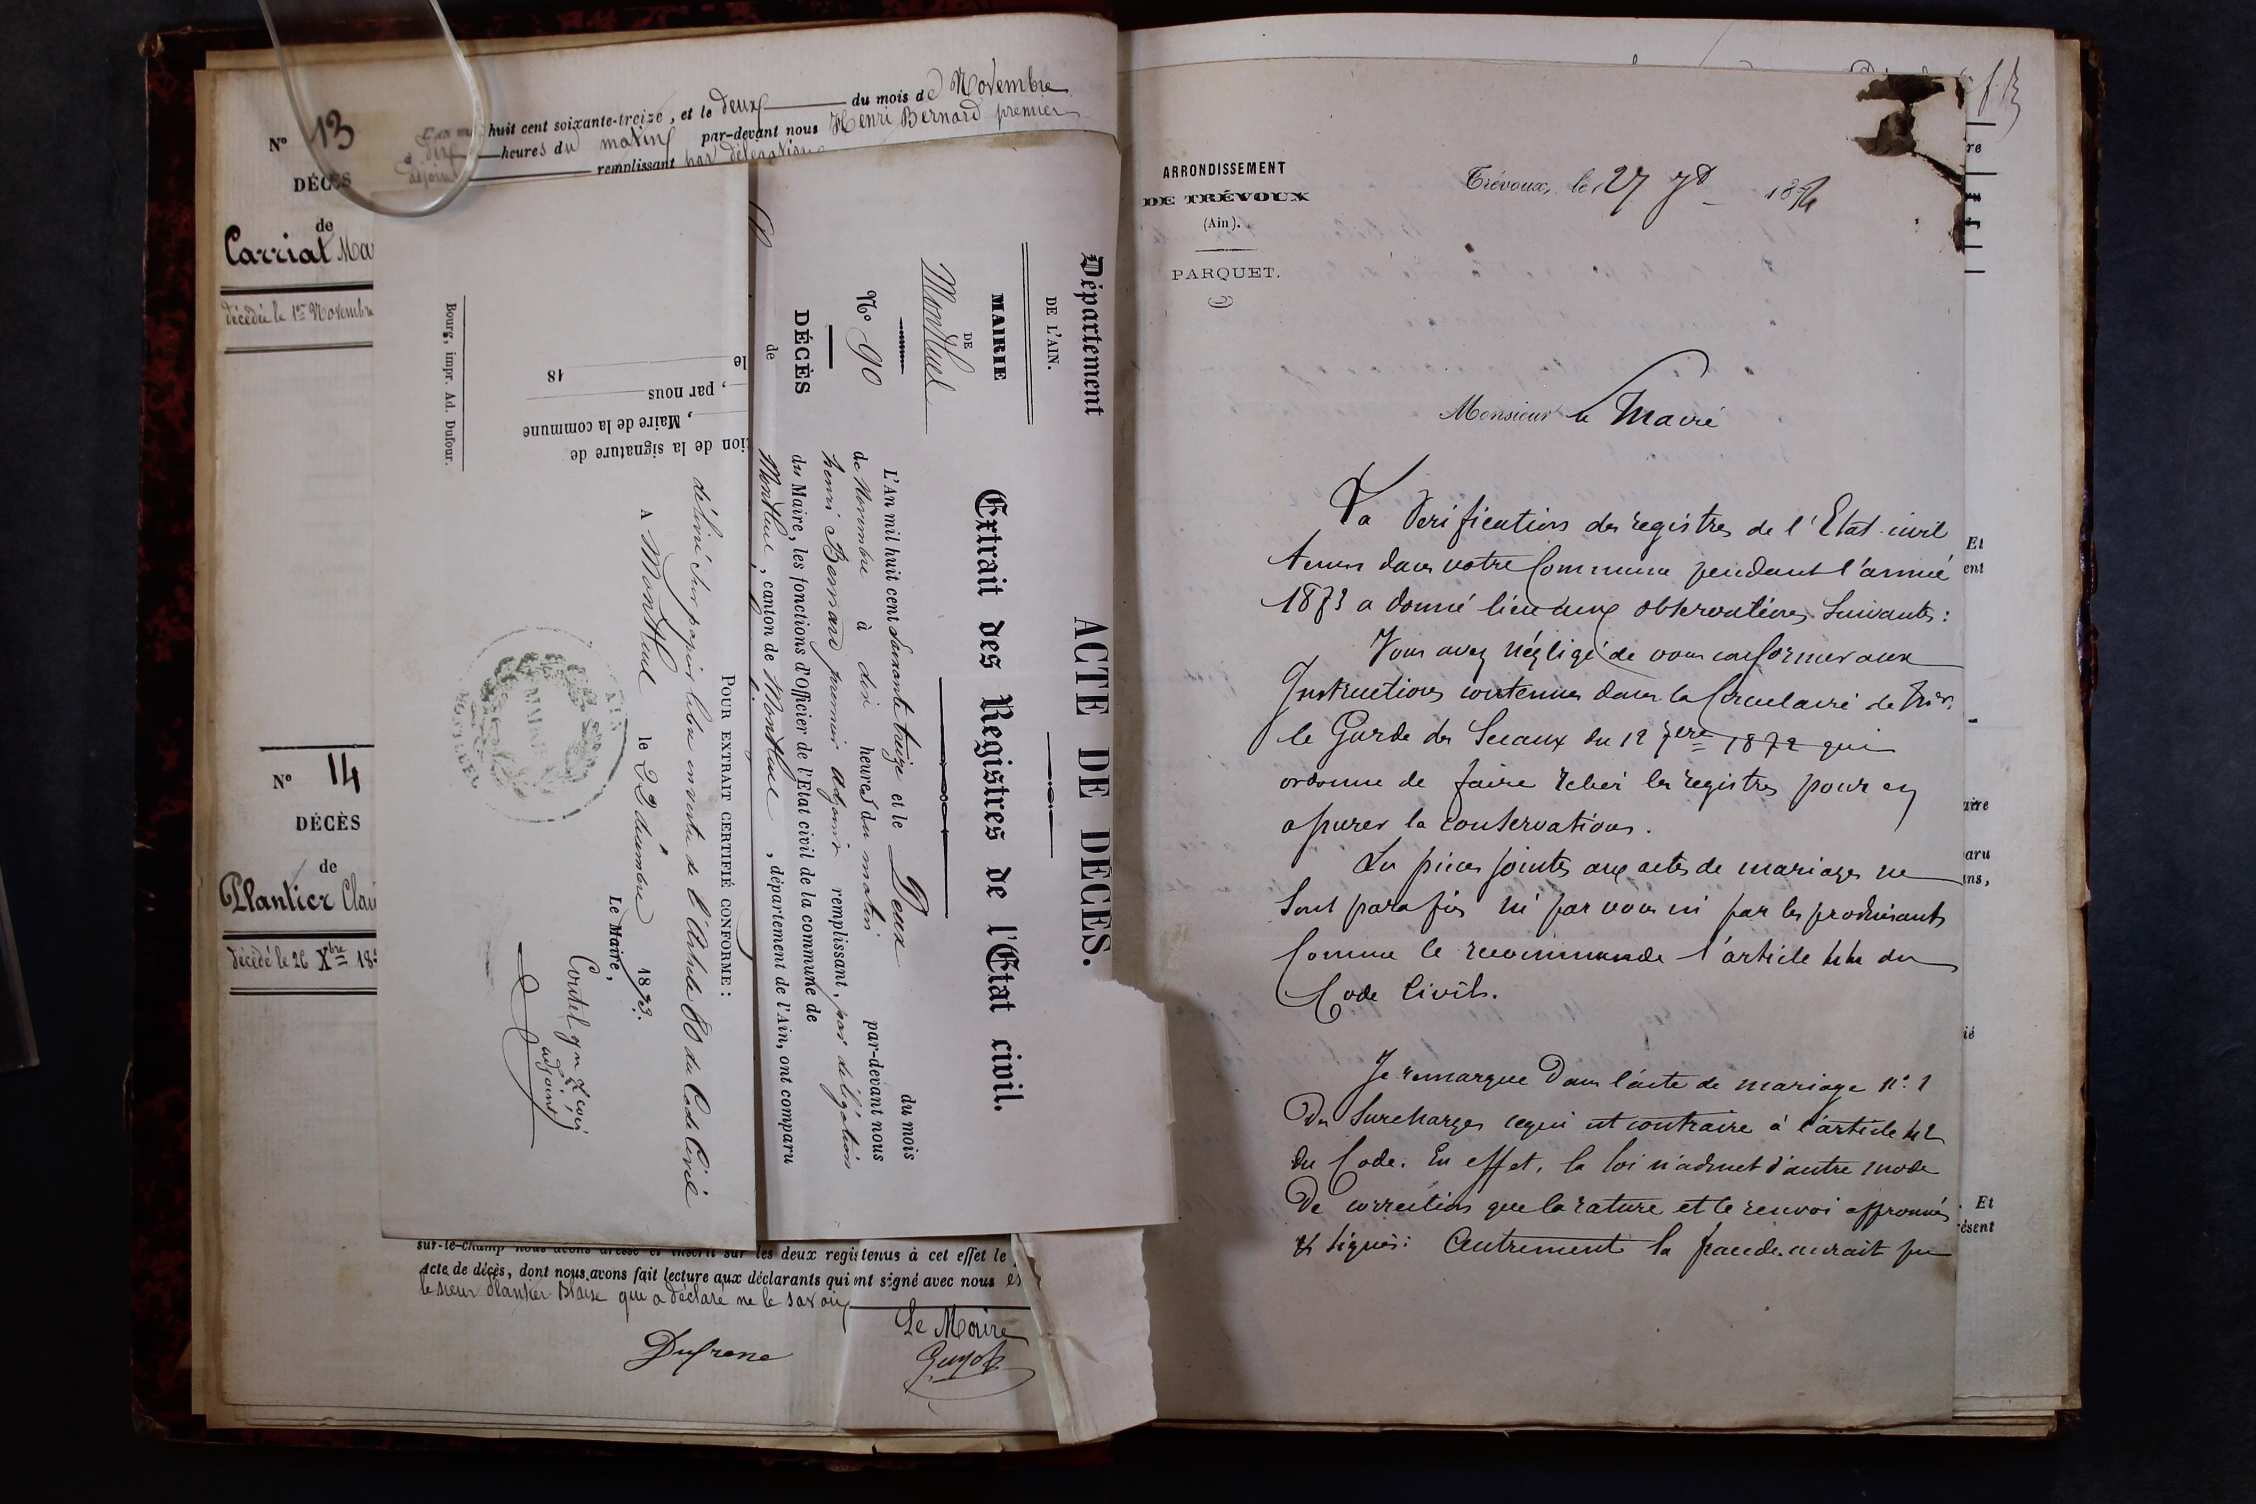 N° 13
DÉCÈS
de
Carrial Ma
décédée le 1er Novembre
N° 14
DÉCÈS
de
Plantier Clau
décédé le 26 Xbre 18
huit cent soixante-treize, et le deux du mois de Novembre
à dix heures du matin par-devant nous Henri Bernard premier
adjoint remplissant par délégation
Département
DE L'AIN.
MAIRIE
DE
Montluel
N° 90
DÉCÈS
de
ACTE DE DÉCÈS.
Extrait des Registres de l'Etat civil.
L'An mil huit cent soixante treize et le Deux du mois
de Novembre à dix heures du matin par-devant nous
henri Bernard premier adjoint remplissant, par délégation
du Maire, les fonctions d'Officier de l'Etat civil de la commune de
Montluel, canton de Montluel, département de l'Ain, ont comparu
POUR EXTRAIT CERTIFIÉ CONFORME :
délivré sur papier libre en vertu de l'Article 80 du Code Civil
A Montluel le 22 décembre 1873.
Le Maire,
adjoint
tion de la signature de
, Maire de la commune
, par nous
le
18
Bourg, impr. Ad. Dufour.
sur-le-champ nous avons dressé et inscrit sur les deux registenus à cet effet le
acte de décès, dont nous avons fait lecture aux déclarants qui ont signé avec nous
le sieur Plantier Blaise qui a déclaré ne le savoir
Le Maire
Dufrene
Guyot
ARRONDISSEMENT
DE TRÉVOUX
(Ain).
PARQUET.
Trévoux, le 27 1874
Monsieur le Maire
La Vérification des registres de l'Etat civil
tenus dans votre Commune pendant l'année
1873 a donné lieu aux observations suivantes :
Vous avez négligé de vous conformer aux
Instructions contenues dans la Circulaire de Mr.
le Garde des Sceaux du 12 1872 qui
ordonne de faire relier les registres pour en
assurer la conservation.
Les pièces jointes aux actes de mariages ne
sont parafées ni par vous ni par les produisants
Comme le recommande l'article 44 du
Code Civil.
Je remarque dans l'acte de mariage n° 1
des surcharges ce qui est contraire à l'article 42
du Code. En effet, la loi n'admet d'autre mode
de correction que la rature et le renvoi approuvés
et signés : Autrement la fraude aurait pu
re
Et
ent
aire
aru
ns,
ié
. Et
résent